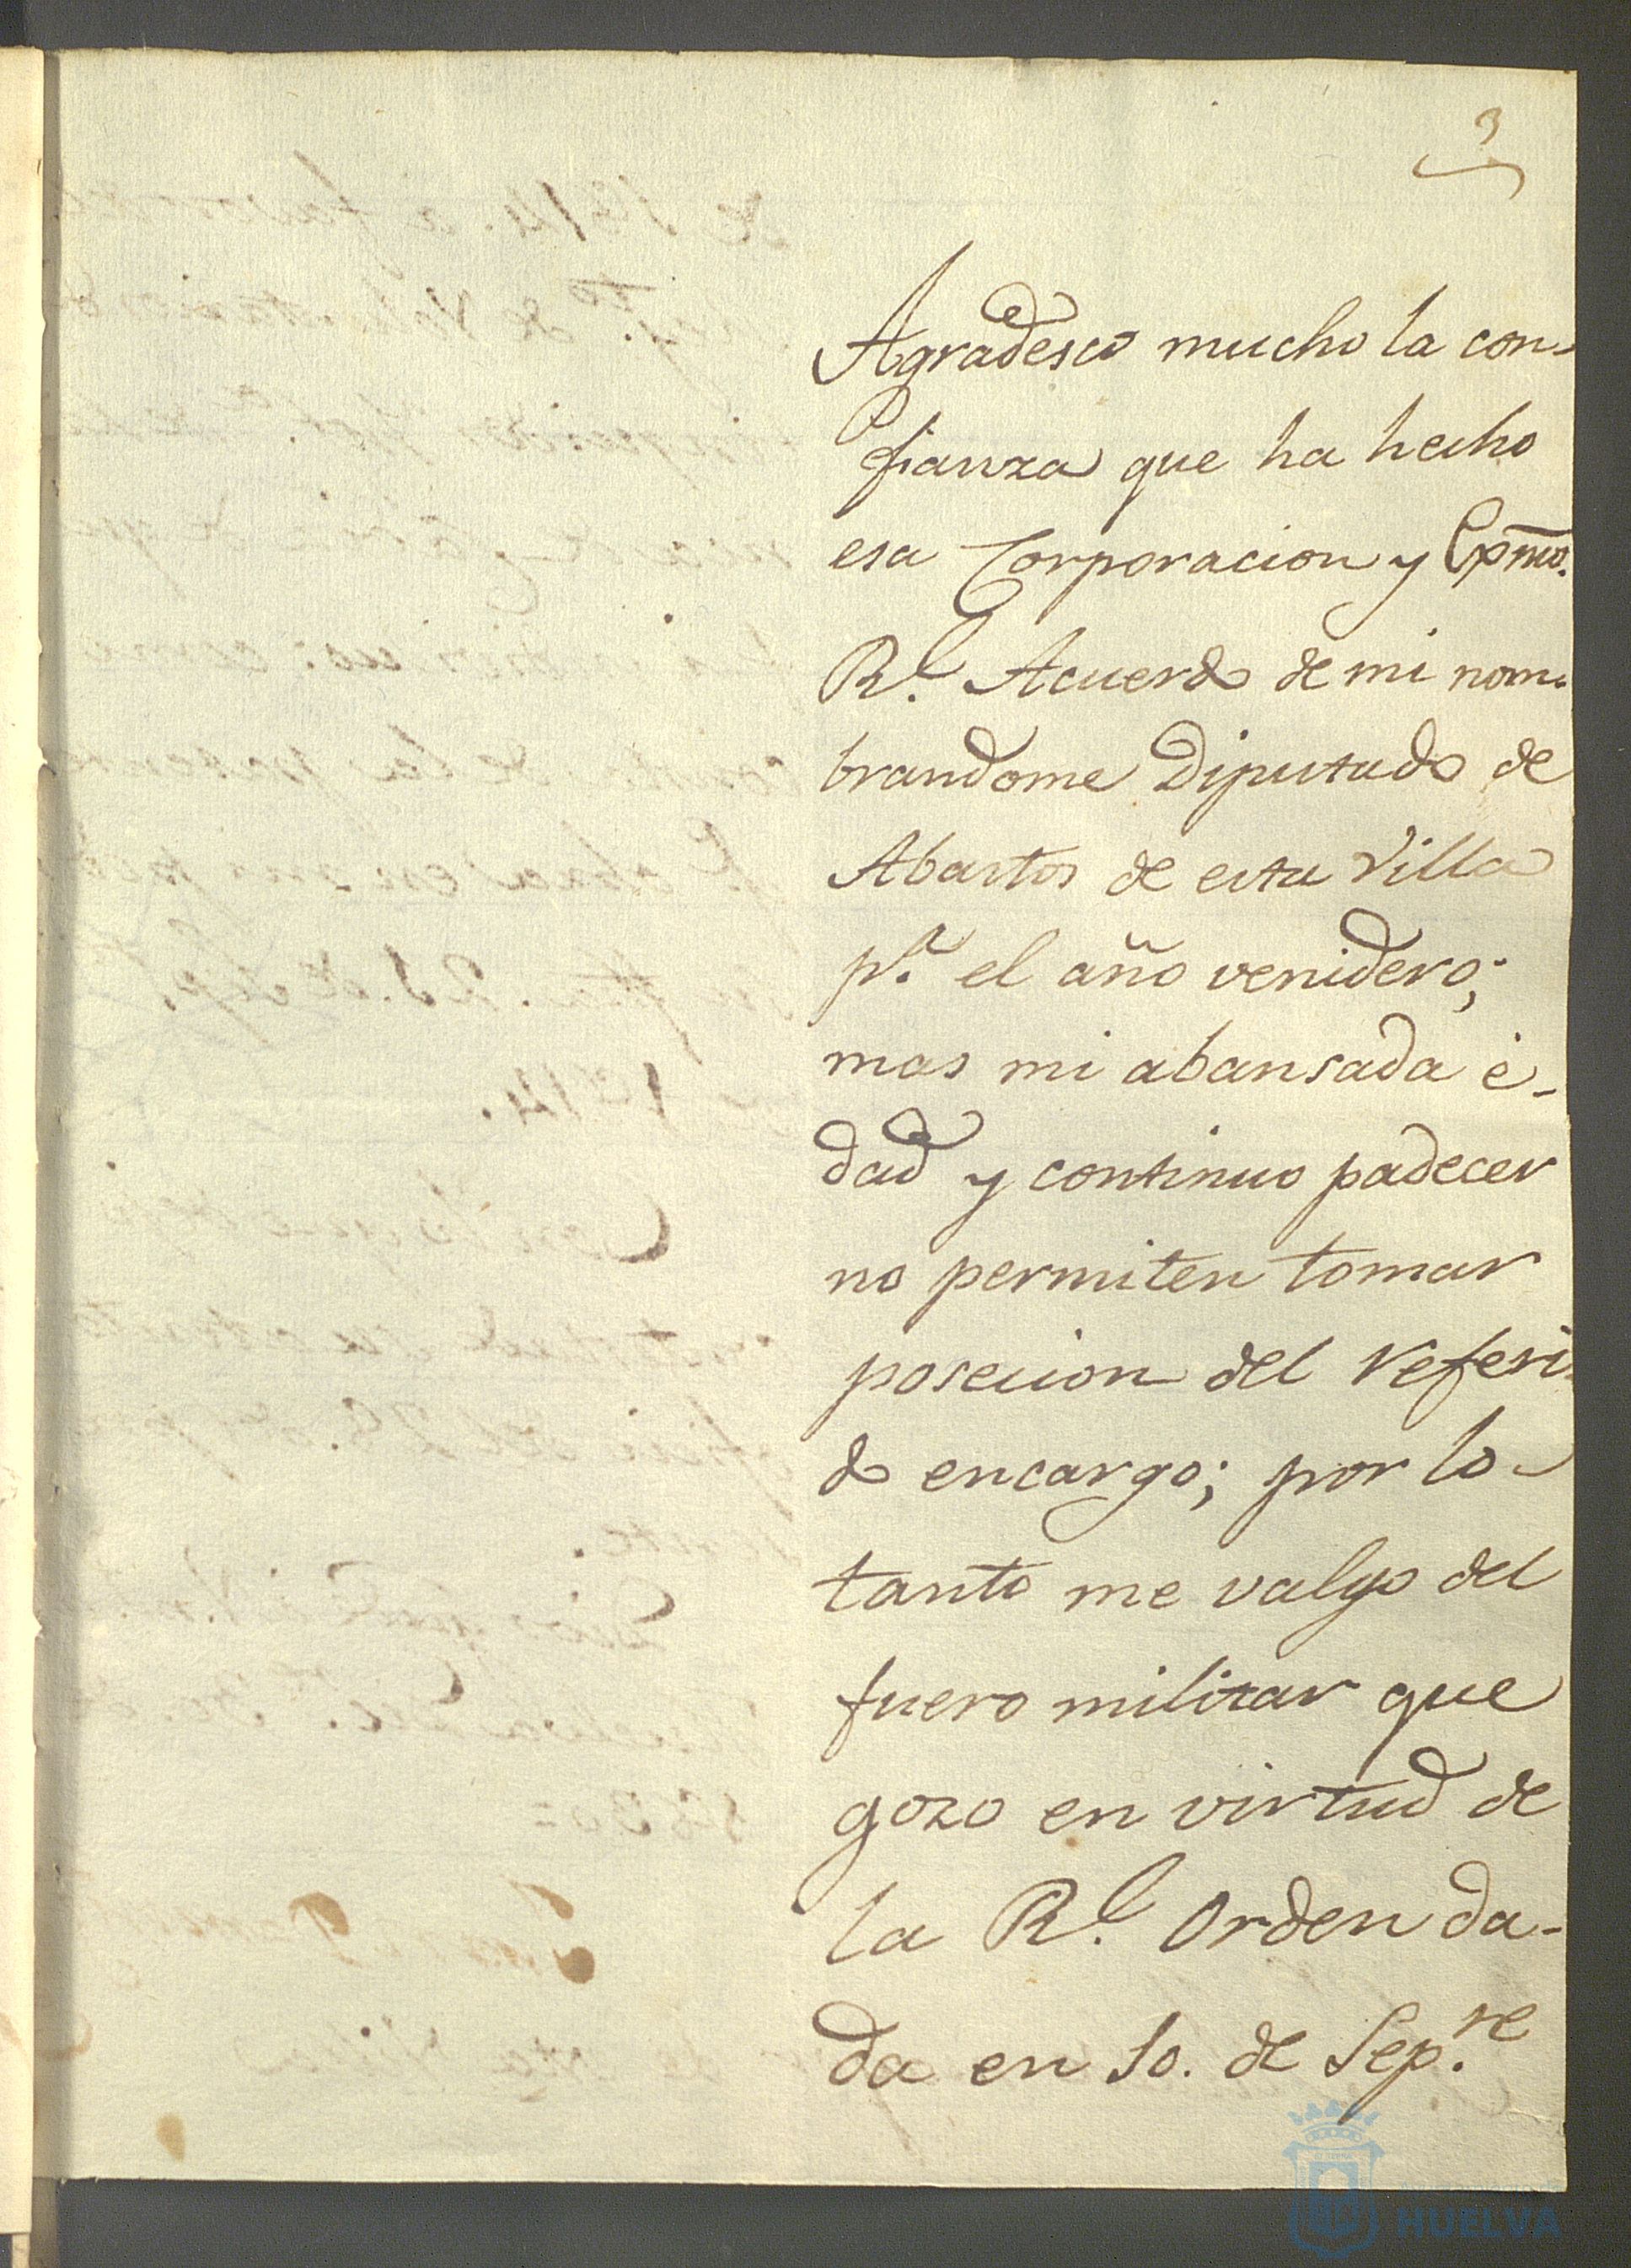 3
Agradesco mucho la con-
fianza que ha hecho
esa Corporacion y Exmo.
Rl. Acuerdo de mi nom-
brandome Diputado de
Abastos de esta Villa
pa. el año venidero;
mas mi abansada e-
dad y continuo padecer
no permiten tomar
posecion del referi-
do encargo; por lo
tanto me valgo del
fuero militar que
gozo en virtud de
la Rl. Orden da-
da en 10. de Sepre.
HUELVA